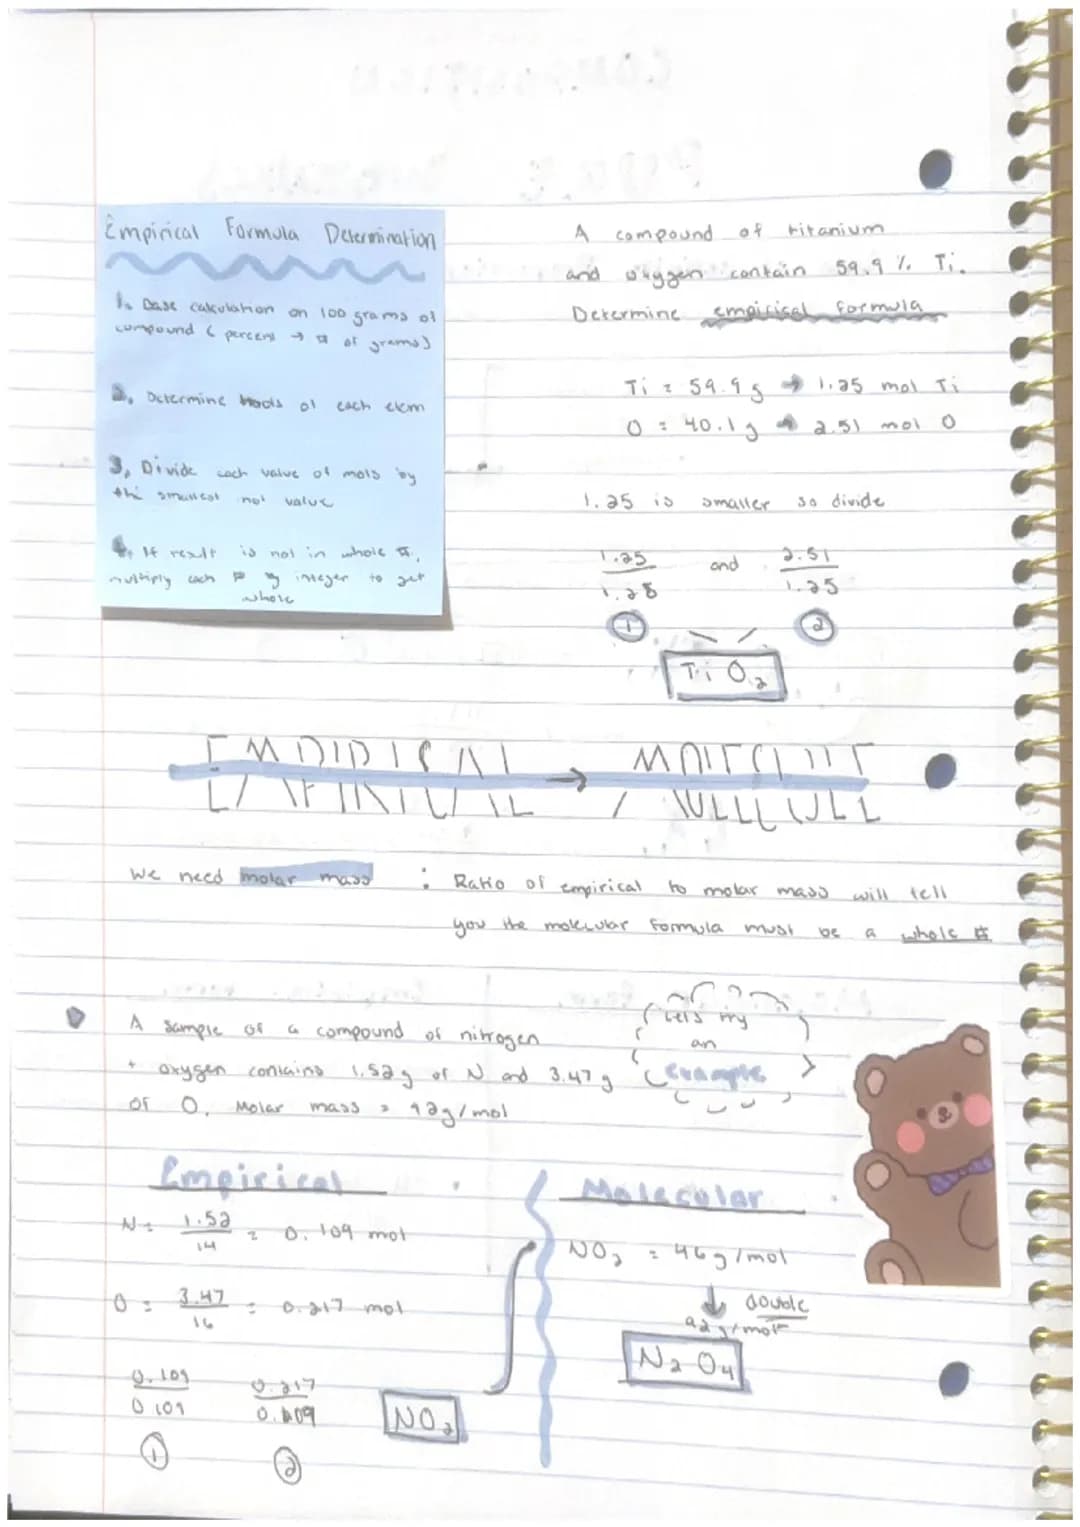 Empirical Formula Determination
1. Base calculation on 100 grams of
compound ( percent → # of grams)
2. Determine mols of each elem
3. Divide each value of mols by
the smallest mol value
4. If result is not in whole #,
multiply each # by integer to get
whole
A compound of titanium
and oxygen contain 59.9 % Ti.
Determine empirical formula
Ti = 59.9 g → 1.25 mol Ti
O = 40.1 g → 2.51 mol O
1.25 is smaller so divide
1.25 and 2.51
1.25 1.25
1 2
TiO2
EMPIRICAL → MOLECULE
We need molar mass : Ratio of empirical to molar mass will tell
you the molecular formula must be a whole #
A sample of a compound of nitrogen
+ oxygen contains 1.52 g of N and 3.47 g
of O. Molar mass = 92g/mol
lets try
an
example
Empirical
N = 1.52 = 0.109 mol
14
O = 3.47 = 0.217 mol
16
0.109 0.217
0.109 0.109
1 2
NO2
Molecular
NO2 = 46 g/mol
↓ double
92 g/mol
N2O4